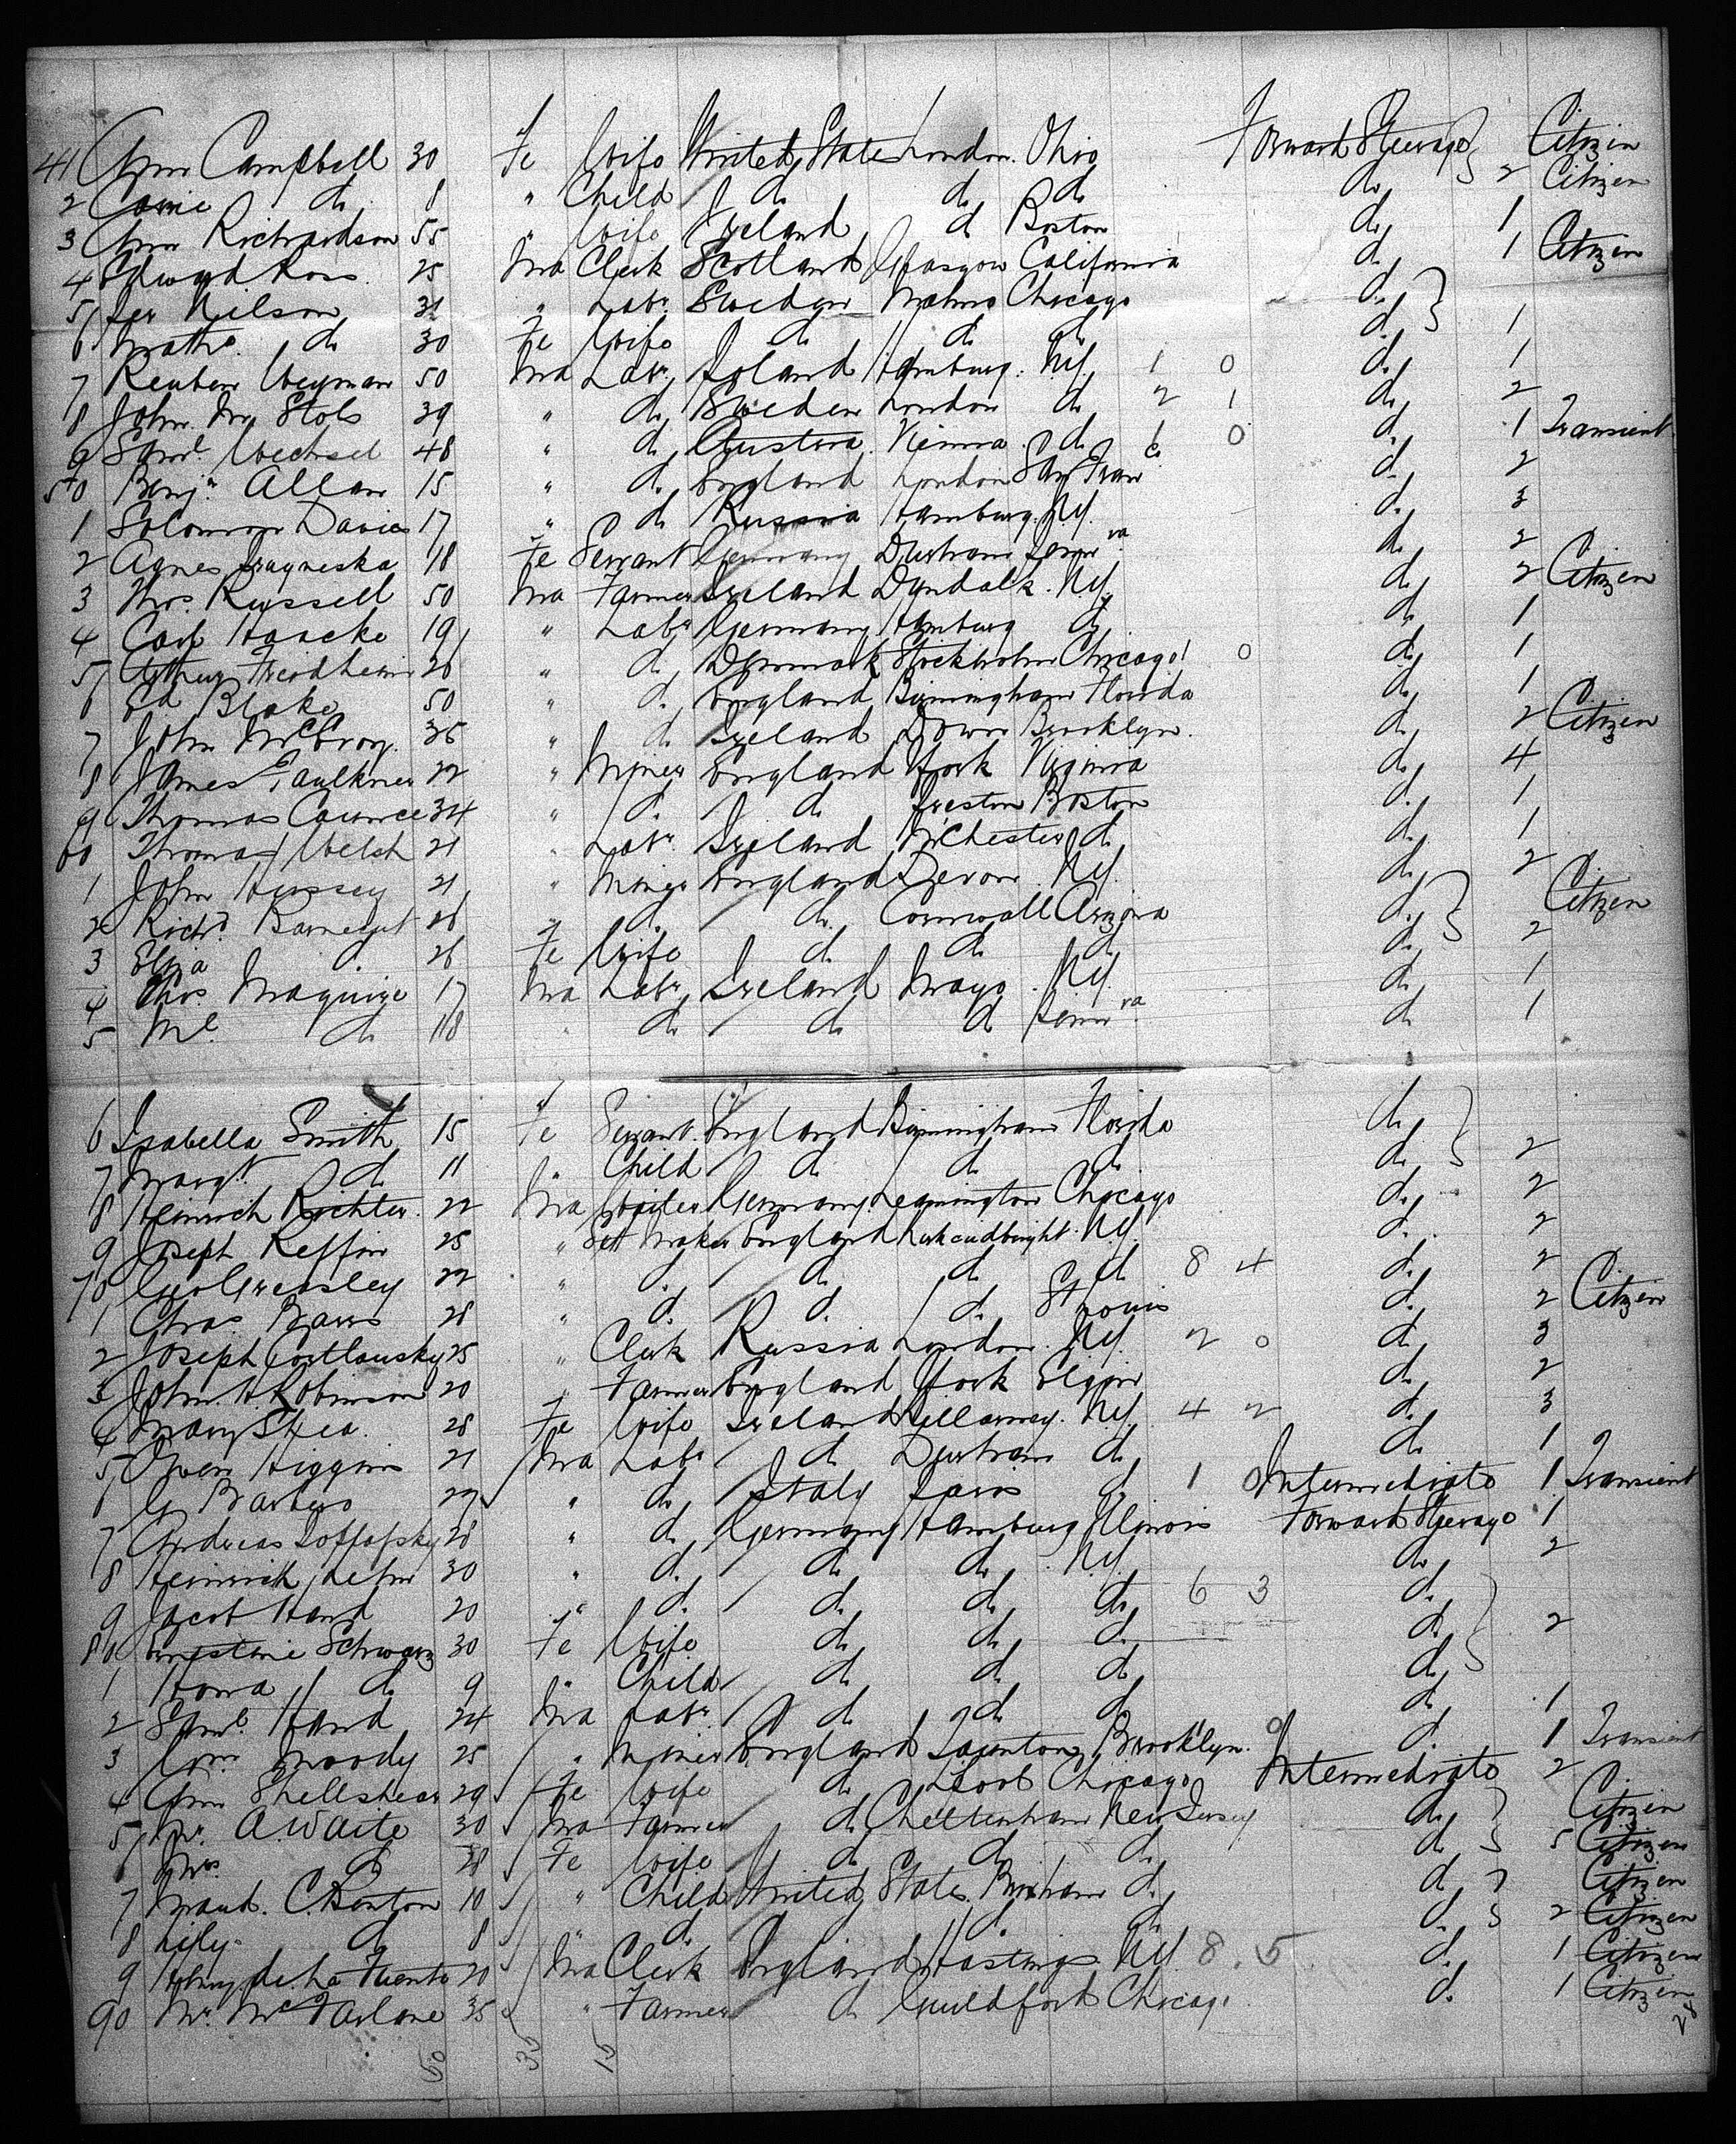 41 Ann Campbell 30 Fe Wife United States London Ohio Forward Steerage Citizen
2 Carrie do 8 " Child do do do do 2 Citizen
3 Ann Richardson 55 " Wife Ireland do Boston do 1
4 Edward Ross 25 Ma Clerk Scotland Glasgow California do 1 Citizen
5 Nilson 31 " Labr Sweden Malmo Chicago do
6 do 30 Fe Wife do do do do 1
7 Reuben Weyman 50 Ma Labr Poland Hamburg NY 1 0 do 1
8 John 39 " do Sweden London do 2 1 do 2
9 Saml Wechsel 48 " do Austria Vienna do 1 0 do 1 Transient
50 Benjn Allan 15 " do England London San Franco do 2
1 Solomon Davies 17 " do Russia Hamburg NY do 3
2 Agnes 18 Fe Servant Germany Durham do 2
3 Thos Russell 50 Ma Farmer Ireland Dundalk NY do 2 Citizen
4 Carl Haacke 19 " Labr Germany Hamburg do do 1
5 Arthur Friedheim 26 " do Denmark Stockholm Chicago 1 0 do 1
6 Ed Blake 50 " do England Birmingham Florida do 1
7 John McEvoy 36 " do Ireland Down Brooklyn do 2 Citizen
8 James Faulkner 22 " Miner England York Virginia do 4
9 Thomas 34 " do do Preston Boston do 1
60 Thomas Welch 21 " Labr Ireland MChester do do 1
1 John Hussey 21 " Miner England Devon NY do 2
2 Richd 26 " do do Cornwall Arizona do Citizen
3 Eliza do 26 Fe Wife do do do do 2
4 Thos Maguire 17 Ma Labr Ireland Mayo NY do 1
5 Ml do 18 " do do do do 1
6 Isabella Smith 15 Fe Servant England Birmingham Florida do
7 Margt do 11 " Child do do do do 2
8 Heinrich Richter 22 Ma Waiter Germany Leamington Chicago do 2
9 Joseph Reffin 25 " Sett Maker England Kirkcudbright NY do 2
70 Geo Greasley 22 " do do do do 8 4 do 2
1 Chas 28 " do do do St Louis do 2 Citizen
2 Joseph 25 " Clerk Russia London NY 2 0 do 3
3 John H Robinson 20 " Farmer England York Elgin do 2
4 Mary Shea 28 Fe Wife Ireland Killarney NY 4 2 do 3
5 Owen Higgins 21 Ma Labr do Durham do do 1
6 G Barbero 22 " do Italy Paris do 1 0 Intermediate 1 Transient
7 Andreas 28 " do Germany Hamburg Illinois Forward Steerage 1
8 Heinrich 30 " do do do NY do 2
9 Jacob Hand 20 " do do do do 6 3 do
80 Ernestine Schwarz 30 Fe Wife do do do do 2
1 do 9 " Child do do do do
2 Saml Hand 24 Ma Labr do do do do 1
3 Wm Moody 25 " Miner England Taunton Brooklyn 0 do 1 Transient
4 Ann Shellshear 29 Fe Wife do Chicago Intermediate 2
5 Mr A. Waite 30 Ma Farmer do Cheltenham New Jersey do Citizen
6 Mrs do 28 Fe Wife do do do do 5 Citizen
7 Maud. C. Benton 10 " Child United States Brixham do do Citizen
8 Lily do 8 " do do do do do 2 Citizen
9 Henry de la Fuente 20 Ma Clerk England Hastings NY 8.5 do 1 Citizen
90 Mr McFarlane 35 " Farmer do Guildford Chicago do 1 Citizen
28
50 35 15